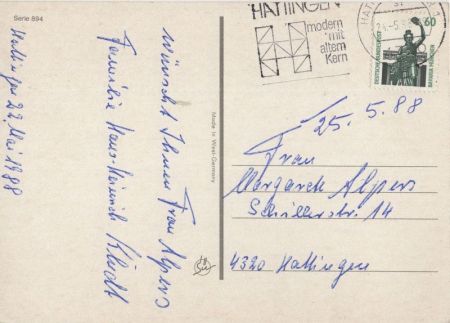 Serie 894
Hattingen 22. Mai 1988
wünscht Ihnen Frau Alpers
Familie Hans-Heinrich Kladt
Made in West-Germany
HATTINGEN
modern
mit
altem
Kern
60
DEUTSCHE BUNDESPOST
BAVARIA MÜNCHEN
25.5.88
Frau
Margarete Alpers
Schillerstr. 14
4320 Hattingen